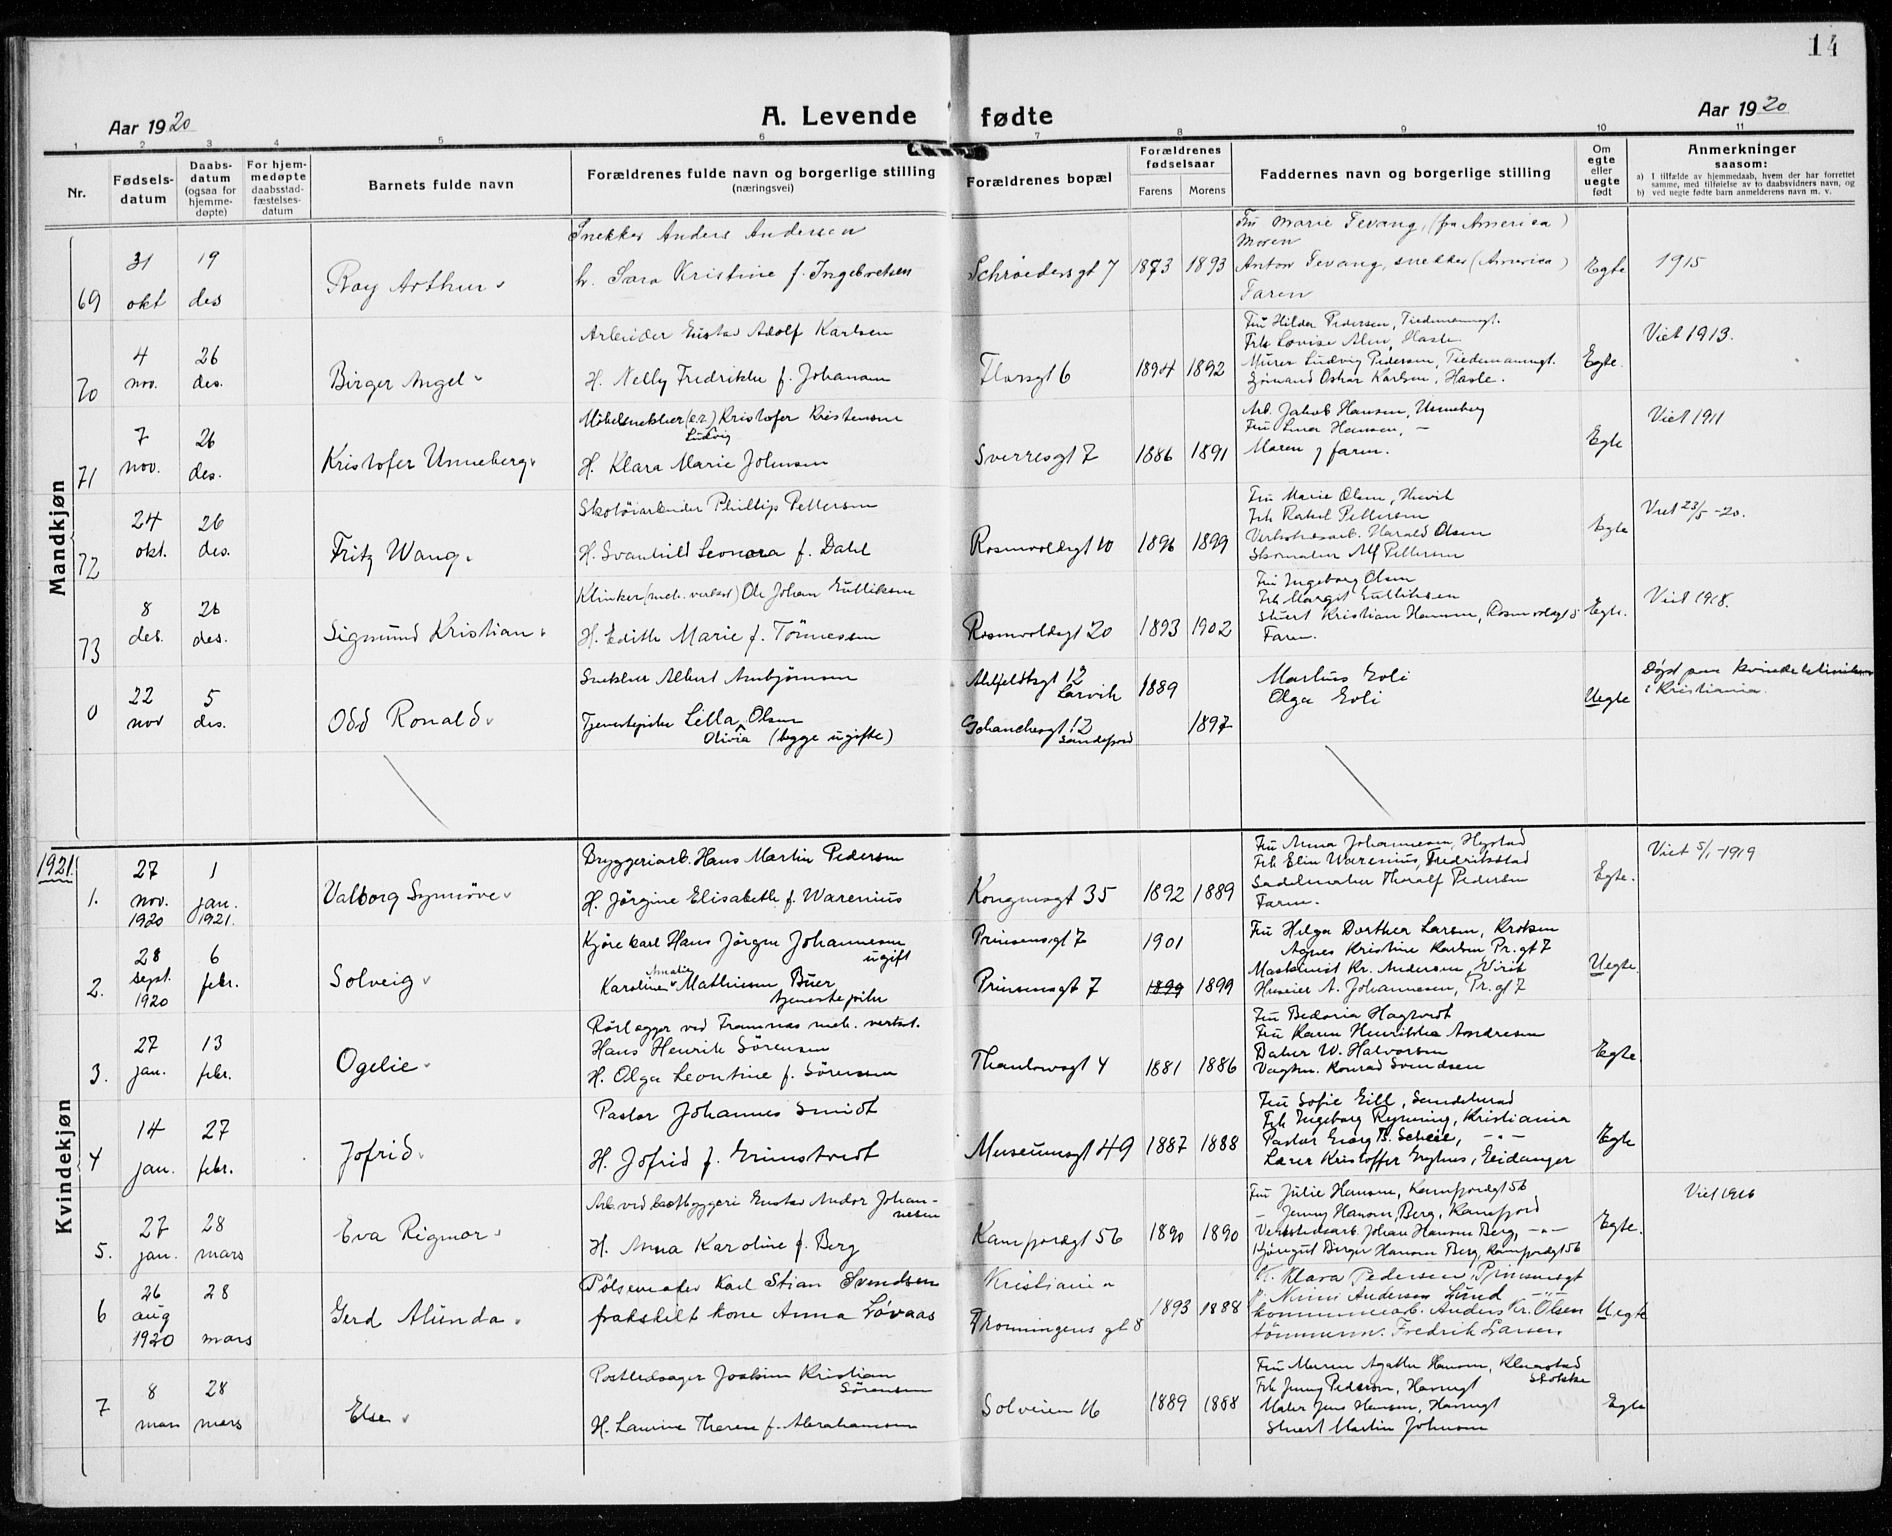 14
Aar 1920
A. Levende fødte
Aar 1920
1 2 3 4 5 6 7 8 9 10 11
Nr.
Fødsels-
datum
Daabs-
datum
(ogsaa for
hjemme-
døpte)
For hjem-
medøpte
daabsstad-
fæstelses-
datum
Barnets fulde navn
Forældrenes fulde navn og borgerlige stilling
(næringsvei)
Forældrenes bopæl
Forældrenes
fødselsaar
Farens
Morens
Faddernes navn og borgerlige stilling
Om
egte
eller
uegte
født
Anmerkninger
saasom:
a) I tilfælde av hjemmedaab, hvem der har forrettet
samme, med tilføielse av to daabsvidners navn, og
b) ved uegte fødte barn anmelderens navn m. v.
Mandkjøn
69
31
okt
19
des
Ray Arthur
Snekker Anders Andersen
h. Sara Kristine f. Ingebretsen
Schrøedersgt 7
1873
1893
Fru Marie Tevang, (fra America)
Moren
Anton Tevang, snekker (America)
Faren
Egte
1915
70
4
nov.
26
des.
Birger Angel
Arbeider Gustav Adolf Karlsen
H. Nelly Fredrikke f. Johansen
Florsgt 6
1894
1892
Fru Hilda Pedersen, Tiedemannsgt.
Frk Lovise Alm, Hasle
Murer Ludvig Pedersen, Tiedemannsgt.
Sjømand Oskar Karlsen, Hasle.
Egte.
Viet 1913.
71
7
nov.
26
des.
Kristofer Unneberg
Møbelsnekker (e.r.) Kristofer Kristensen
Ludvig
H. Klara Marie Johnsen
Sverresgt 7
1886
1891
Arb. Jakob Hansen, Unneberg
Fru Hansen, –
Moren y faren.
Egte
Viet 1911
72
24
okt.
26
des.
Fritz Wang
Skotøiarbeider Phillip Pettersen
H. Svanhild Leonora f. Dahl
Rosenvoldsgt 10
1896
1899
Fru Marie Olsen, Huvik
Frk Rakel Pettersen
Verkstedsarb. Harald Olsen
Skomaker Alf Pettersen
Egte
Viet 23/5 -20.
73
8
des.
26
des.
Sigmund Kristian
Klinker (mek. verkst) Ole Johan Gulliksen
H. Edith Marie f. Tønnessen
Rosenvoldsgt 20
1893
1902
Fru Ingeborg Olsen
Frk Margit Gulliksen
Stuert Kristian Hansen, Rosenvoldsgt 5
Faren.
Egte.
Viet 1918.
0
22
nov
5
des.
Odd Ronald
Snekker Albert Arnbjørnsen
Tjenestepike Lilla Olsen
Olivia (begge ugifte)
Ahlfeldtsgt 12
Larvik
Schanchesgt 12
Sandefjord
1889
1897
Martius Eoli
Olga Eoli
Uegte
Døpt paa kvindeklinikken
i Kristiania.
Kvindekjøn
1921.
1.
27
nov.
1920
1
jan.
1921.
Valborg Synnøve
Bryggeriarb. Hans Martin Pedersen
H. Jørgine Elisabeth f. Warenius
Kongensgt 35
1892
1889
Fru Anna Johannessen, Hystad
Frk Elin Warenius, Fredrikstad
Sadelmaker Thoralf Pedersen
Faren.
Egte.
Viet 5/1 -1919
2.
28
sept.
1920
6
febr.
Solveig
Kjørekarl Hans Jørgen Johannesen
ugift
Amalie
Karoline Mathiesen Buer
tjenestepike
Prinsensgt 7
Prinsensgt 7
1901
1899
1899
Fru Helga Dorthea Larsen, Kroken
Agnes Kristine Karlsen Pr. gt 7
Maskinist Kr. Andersen, Virik
Huseier A. Johannesen, Pr. gt 7
Uegte.
3.
27
jan.
13
febr.
Ogelie
Rørlægger ved Framnæs mek. verkst.
Hans Henrik Sørensen
H. Olga Leontine f. Sørensen
Thaulowsgt 4
1881
1886
Fru Bedoria Hagtvedt
Fru Karen Henrikke Andresen
Baker W. Halvorsen
Vagtm. Konrad Svendsen
Egte
4
14
jan.
27
febr.
Jofrid
Pastor Johannes Smidt
H. Jofrid f. Grimstvedt
Museumsgt 49
1887
1888
Fru Sofie Eill, Sandeherad
Frk Ingeborg Reyning, Kristiania
Pastor Georg B. Scheie, – " –
Lærer Kristoffer Eidanger
Egte
5.
27
jan.
28
mars
Eva Rigmor
Arb. ved baatbyggeri Gustav Andor Johan-
nesen
H. Anna Karoline f. Berg
Kamfjordgt 56
1890
1890
Fru Julie Hansen, Kamfjordgt 56
– Jenny Hansen Berg, Kamfjord
Verkstedsarb. Johan Hansen Berg, – " –
Kjøregut Birger Hansen Berg, Kamfjordgt 56
Egte.
Viet 1916
6
26
aug
1920
28
mars
Gerd Alunda
Pølsemaker Karl Stian Svendsen
fraskilt kone Anna Løvaas
Kristiania
Dronningens gt 8
1893
1888
K. Klara Pedersen, Prinsensgt
Andersen Lund – " –
kommunearb. Anders Kr. Olsen
tømmerm. Fredrik Larsen.
Uegte
7
8
mars
28
mars
Else
Postledsager Joakim Kristian
Sørensen
H. Laurine Therese f. Abrahamsen
Solveien 16
1889
1888
Fru Maren Agathe Hansen, Klaastad
Stokke
Frk Jenny Pedersen, Havnegt
Maler Jens Hansen, Havnegt
Stuert Martin Johnsen
Egte